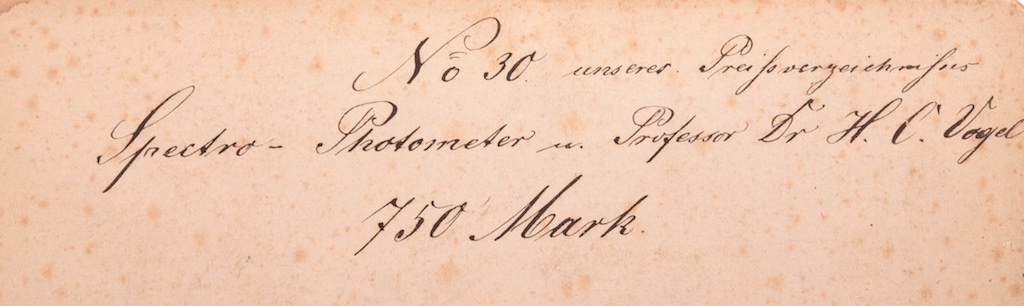 No 30. unseres Preißverzeichnißes
Spectro- Photometer n. Professor Dr H. C. Vogel
750 Mark.